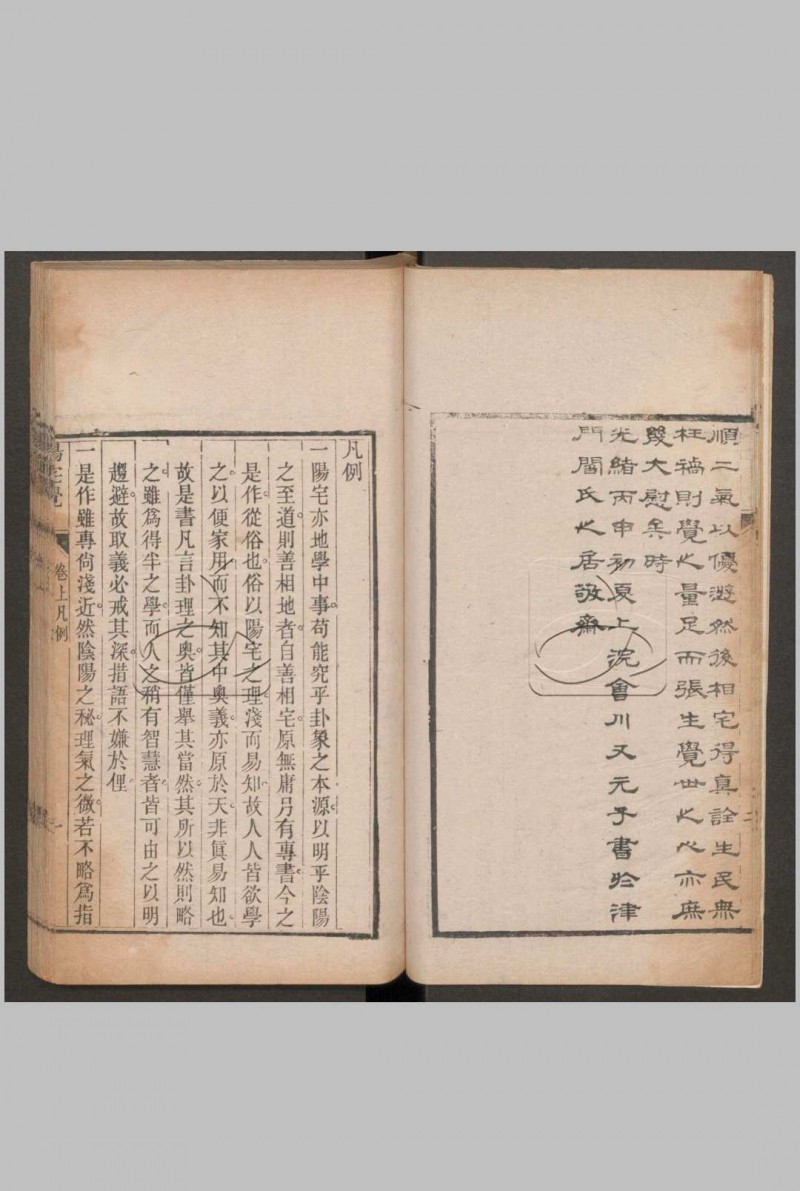 順二氣以優游然後相宅得真詮生民無
枉禍則覺之量足而張生覺世之心亦庶
幾大慰矣時
光緒丙申初夏上浣會川又元子書於津
門閻氏之居敬齋
凡例
一陽宅亦地學中事苟能究乎卦象之本源以明乎陰陽
之至道則善相地者自善相宅原無庸另有專書今之
是作從俗也俗以陽宅之理淺而易知故人人皆欲學
之以便家用而不知其中奧義亦原於天非眞易知也
故是書凡言卦理之奧皆僅舉其當然其所以然則略
之雖爲得半之學而人之稍有智慧者皆可由之以明
趨避故取義必戒其深措語不嫌於俚
一是作雖專尙淺近然陰陽之秘理氣之微若不略爲指
陽宅覺
卷上凡例
一